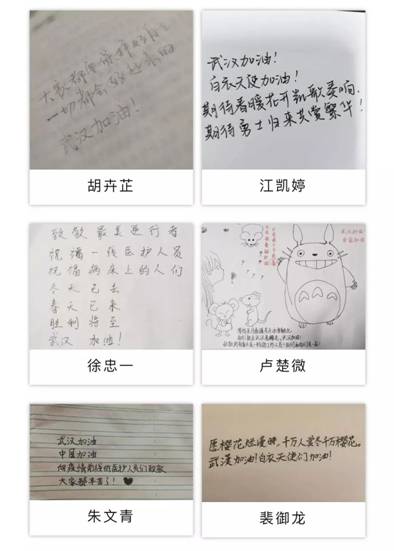 大家都要保持好的心
一切都会好起来的
武汉加油！
胡卉芷
武汉加油！
白衣天使加油！
期待春暖花开凯歌奏响，
期待勇士归来共赏繁华！
江凯婷
致敬最美逆行者
祝福一线医护人员
祝福病床上的人们
冬天已去
春天已来
胜利将至
武汉 加油！
徐忠一
卢楚微
武汉加油
中国加油
向疫情前线的医护人员们致敬
大家都辛苦了！
朱文青
愿樱花烂漫时，千万人赏尽千万樱花。
武汉加油！白衣天使们加油！
裴御龙